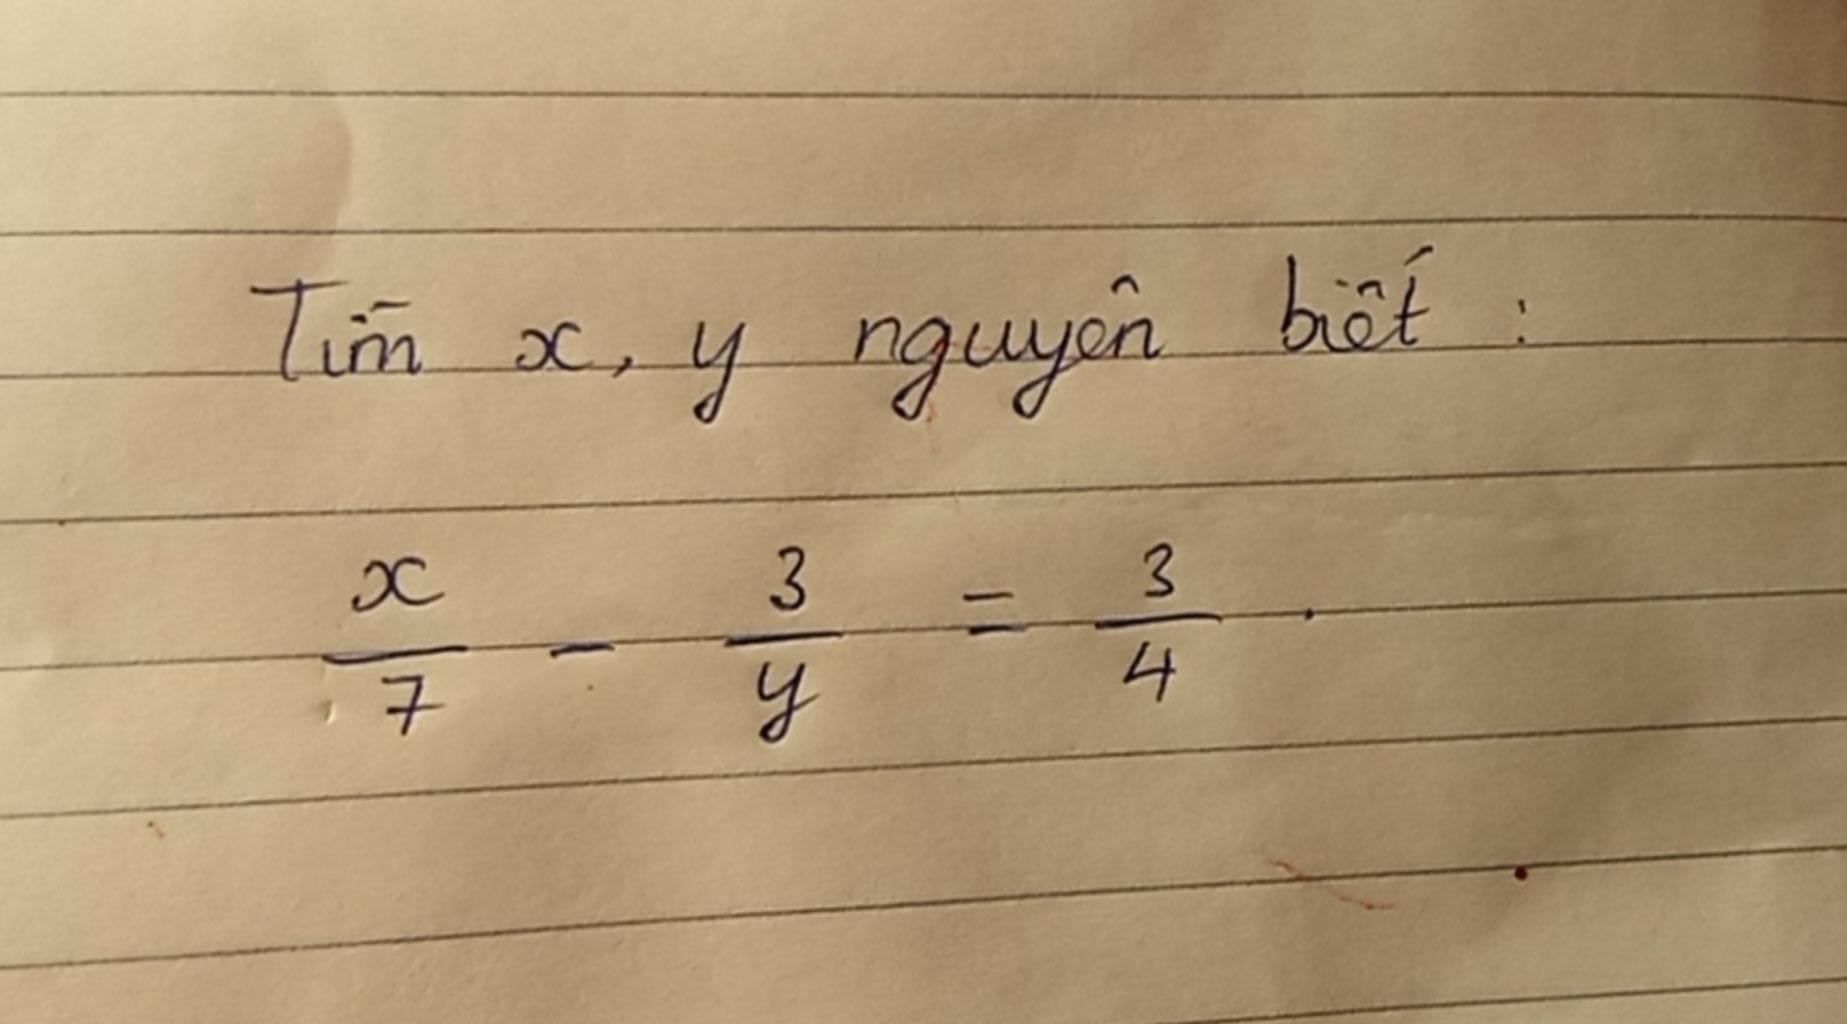 Tìm x, y nguyên biết :
x/7 - 3/y = 3/4 .